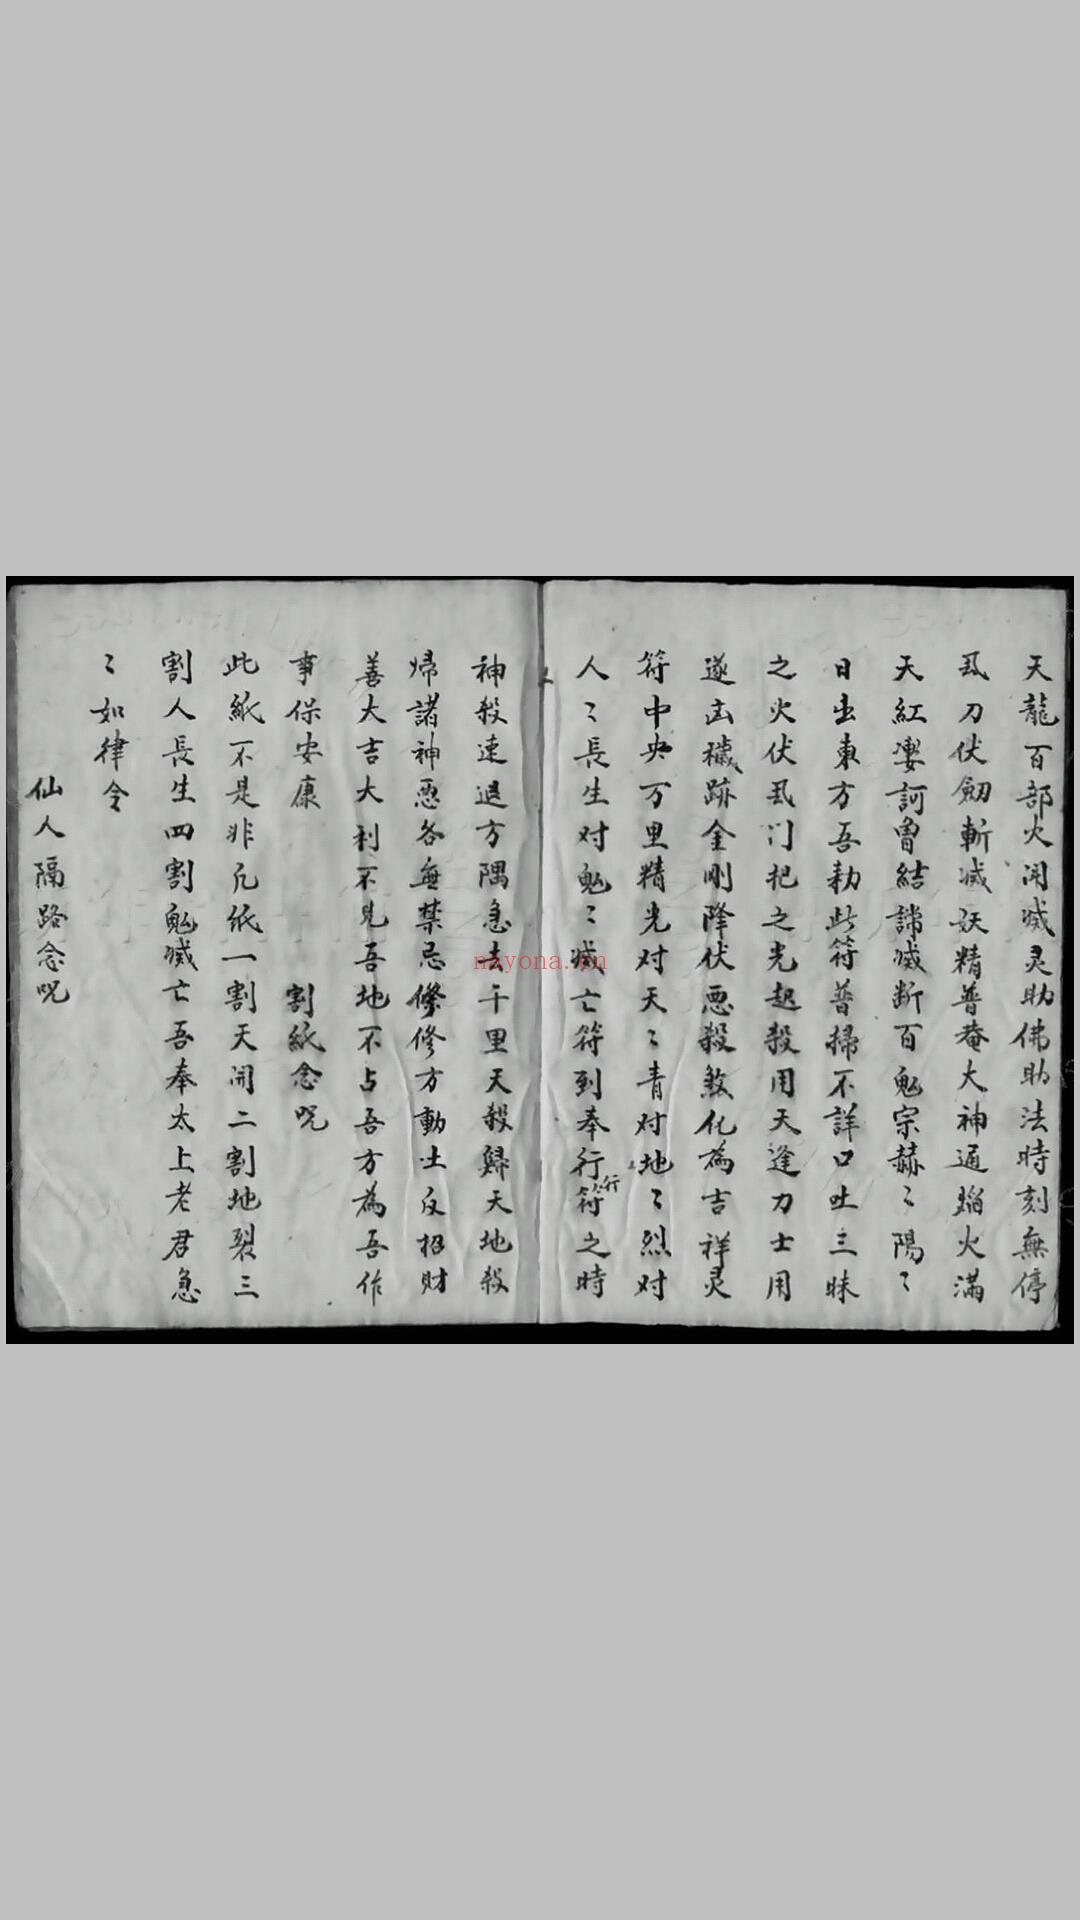 天龍百部火闭滅灵助佛助法時刻無停
刀伏劒斬滅妖精普庵大神通焰火滿
天紅婁訶曾結諦滅断百鬼宗赫〻陽〻
日出東方吾勅此符普掃不詳口吐三昧
之火伏门把之光起殺用天逢力士用
遂凶穢跡金剛降伏悪殺煞化為吉祥灵
符中央万里精光对天〻青对地〻烈对
人〻長生对鬼〻滅亡符到奉行行符之時
神殺速退方隅急去千里天殺歸天地殺
帰諸神悪各無禁忌修方動土反招財
善大吉大利不見吾地不占吾方為吾作
事保安康 割紙念咒
此紙不是非凡纸一割天開二割地裂三
割人長生四割鬼滅亡吾奉太上老君急
〻如律令
仙人隔路念咒
nayona.cn